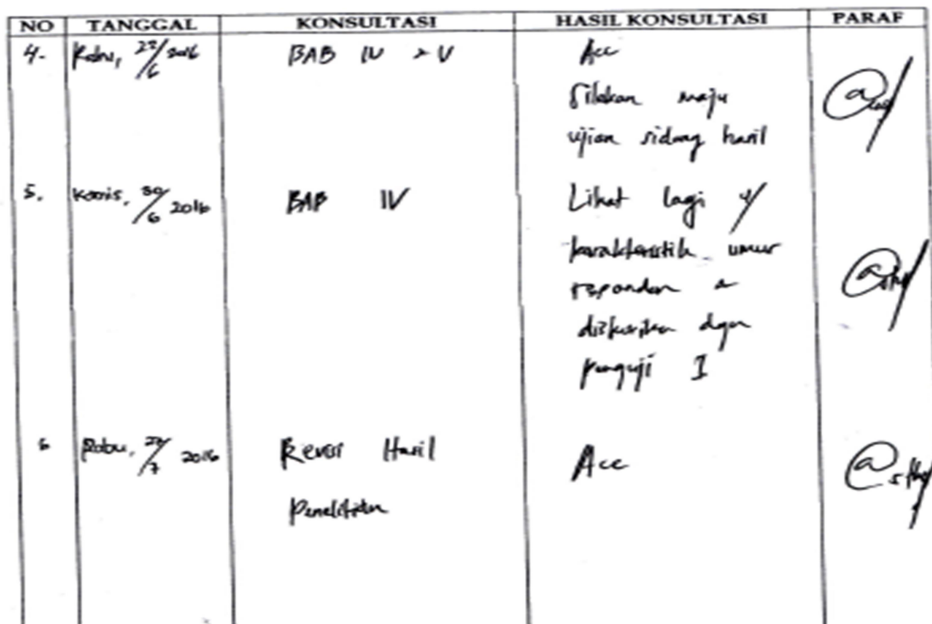 NO TANGGAL KONSULTASI HASIL KONSULTASI PARAF
4. Rabu, 22/6 2016 BAB IV & V Acc
Silakan maju
ujian sidang hasil
5. Kamis, 30/6 2016 BAB IV Lihat lagi u/
karakteristik umur
responden &
diskusikan dgn
penguji I
6 Rabu, 27/7 2016 Revisi Hasil Acc
Penelitian